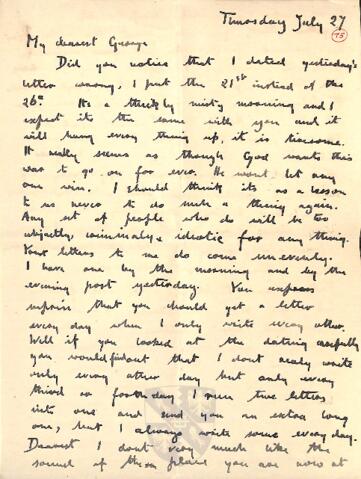 Thursday July 27
75
My dearest George
Did you notice that I dated yesterday's
letter wrong, I put the 21st instead of the
26th. It's a thickly misty morning and I
expect its the same with you and it
will hang every thing up, it is tiresome.
It really seems as though God wants this
war to go on for ever. He wont let any
one win. I should think its as a lesson
to us never to do such a thing again.
Any set of people who do will be too
abjectly, criminally & idiotic for any thing.
Your letters to me do come unevenly.
I have one by the morning and by the
evening post yesterday. You express
that you should get a letter
every day when I only write every other.
Well if you looked at the dating carefully
you would find out that I dont really write
only every other day but only every
third or forth day I run two letters
into one and send you an extra long
one, but I always write some every day.
Dearest I dont very much like the
sound of this place you are now at